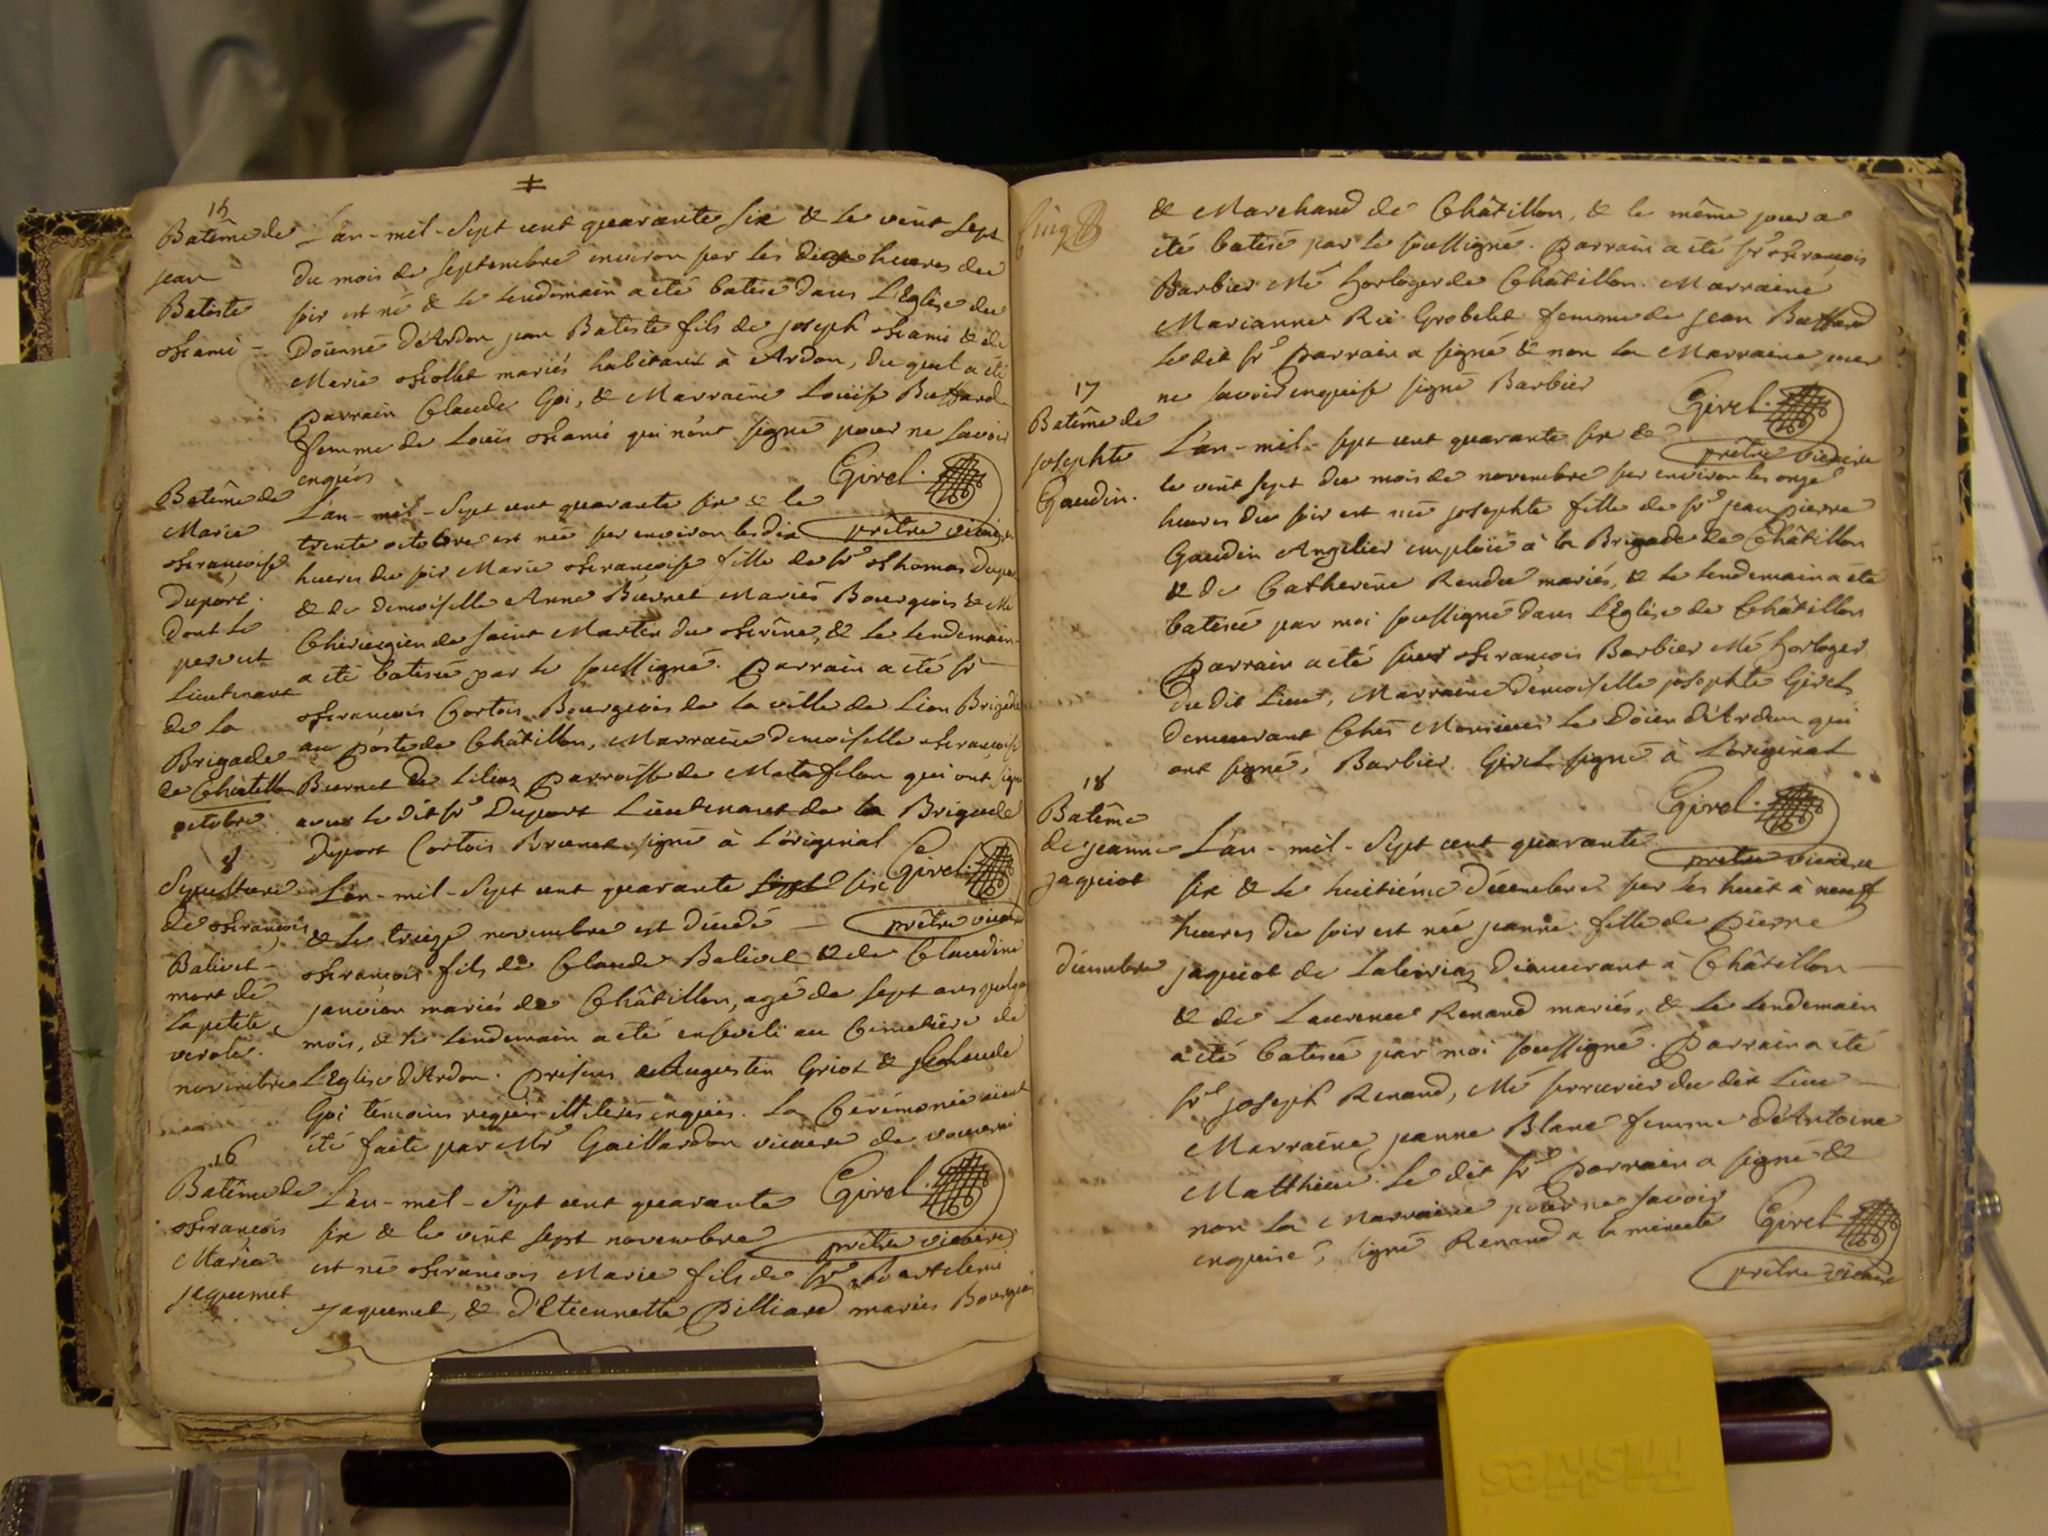 15
Batême de
jean
Batiste
L'an - mil - Sept cent quarante six & le vint sept
du mois de septembre environ sur les dix heures du
soir est né & le lendemain a été batisé dans L'Eglise du
Doïenné d'Ardon jean Batiste fils de joseph & de
Marie mariés habitants à Ardon, du quel a été
parrain Claude Goi, & Marraine Loüise Buffard
femme de Loüis qui n'ont signé pour ne savoir
enquis
Girel
prêtre vicaire
Batême de
Marie
francoise
Duport.
dont le
per eut
Lieutenant
de la
Brigade
de Châtillon
octobre
L'an - mil - Sept cent quarante six & le
trente octobre est née sur environ les dix
heures du soir Marie francoise fille de sr Thomas Duport
& de demoiselle Anne Burnet Mariés Bourgeois & Mé
Chirurgien de saint Martin du frêne, & le lendemain
a été batisée par le soussigné. parrain a été sr
francois Cortois Bourgeois de la ville de Lion Brigadier
au poste de Châtillon, Marraine demoiselle francoise
Burnet de Lilias parroisse de Matafelon qui ont signé
avec le dit sr Duport Lieutenant de la Brigade
Duport Cortois Brunet signé à L'original
Girel
prêtre vicaire
8
Sepulture
de francois
Balivet
mort de
la petite
verole.
novembre
L'an - mil - Sept cent quarante sept six
& le treize novembre est décédé
francois fils de Claude Balivet & de Claudine
janvier mariés de Châtillon, agé de sept ans quelque
mois, & le lendemain a été enseveli au Cimetière de
L'Eglise d'Ardon. présens Augustin Griot & Claude
Goi témoins requis illiterés enquis. La Cérémonie aient
été faite par Mr Gaillardon vicaire de
Girel
prêtre vicaire
16
Batême de
francois
Marie
jaquemet
L'an - mil - Sept cent quarante
six & le vint sept novembre
est né francois Marie fils de sr Bartelemi
jaquemet, & d'Etiennette Pilliard mariés Bourgeois
cinq
& Marchand de Châtillon, & le même jour a
été batisé par le soussigné. parrain a été sr francois
Barbier Mé horloger de Châtillon. Marraine
Marianne Rei Grobelet femme de jean Buffard
le dit sr parrain a signé & non la Marraine
ne savoir enquise signé Barbier
Girel
prêtre vicaire
17
Batême de
josephte
Gaudin.
L'an - mil - sept cent quarante six &
le vint sept du mois de novembre sur environ les onze
heures du soir est née josephte fille de sr jean pierre
Gaudin Angelier emploïé à la Brigade de Châtillon
& de Catherine Rendu mariés, & le lendemain a été
batisée par moi soussigné dans L'Eglise de Châtillon
parrain a été sieur francois Barbier Mé horloger
du dit Lieu, Marraine demoiselle josephte Girel
demeurant Chés Monsieur le Doïen d'Ardon qui
ont signé, Barbier. Girel signé à L'original
Girel
prêtre vicaire
18
Batême
de jeanne
jaquiot
décembre
L'an - mil - Sept cent quarante
six & le huitiéme décembre sur les huit à neuf
heures du soir est née jeanne fille de pierre
jaquiot de Laleirias demeurant à Châtillon
& de Laurence Renaud mariés, & le lendemain
a été batisée par moi soussigné. Parrain a été
sr joseph Renaud, Mé serrurier du dit Lieu
Marraine jeanne Blanc femme d'Antoine
Matthieu. Le dit sr parrain a signé &
non la Marraine pour ne savoir
enquise, signé Renaud a la minute
Girel
prêtre vicaire